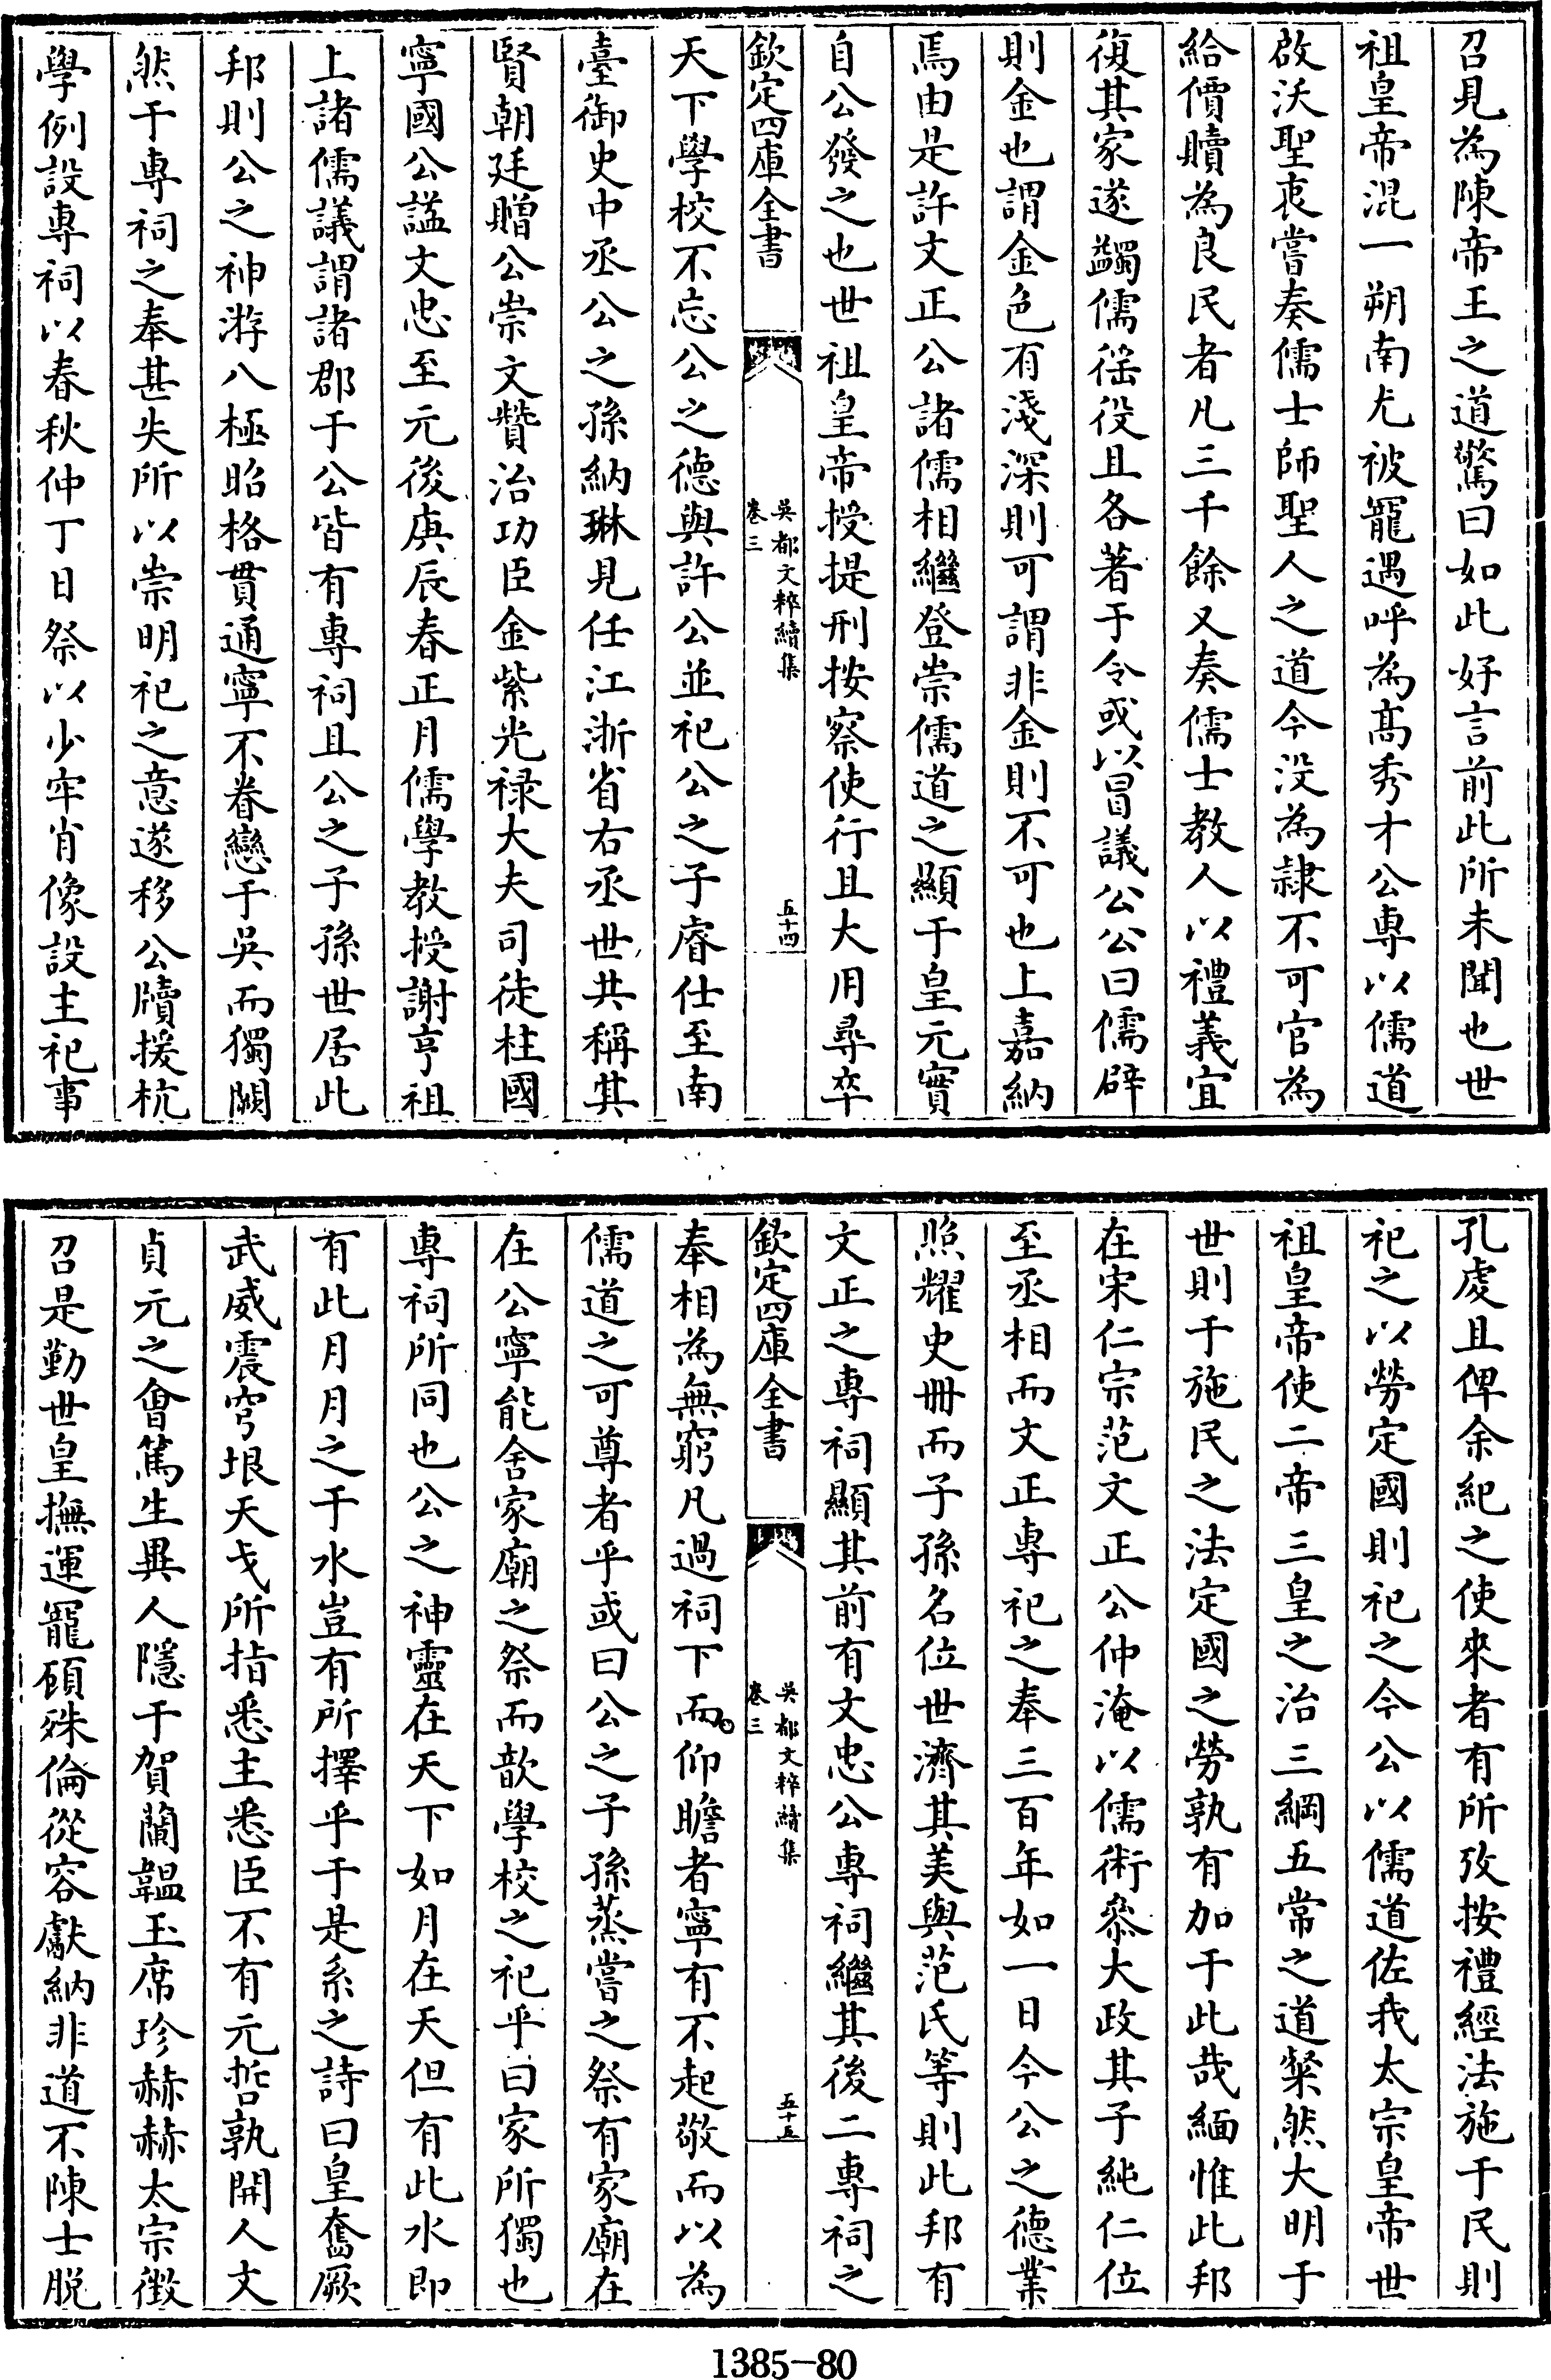 召見為陳帝王之道驚曰如此好言前此所未聞也世
祖皇帝混一朔南尤被寵遇呼為髙秀才公專以儒道
啟沃聖衷嘗奏儒士師聖人之道今没為隷不可官為
給價贖為良民者凡三千餘又奏儒士教人以禮義宜
復其家遂蠲儒徭役且各著于令或以冒議公公曰儒辟
則金也謂金色有淺深則可謂非金則不可也上嘉納
焉由是許文正公諸儒相繼登崇儒道之顯于皇元實
自公發之也世祖皇帝授提刑按察使行且大用尋卒
欽定四庫全書
吳都文粹續集
卷三
五十四
天下學校不忘公之德與許公並祀公之子睿仕至南
臺御史中丞公之孫納琳見任江浙省右丞世共稱其
賢朝廷贈公崇文贊治功臣金紫光禄大夫司徒柱國
寧國公諡文忠至元後庚辰春正月儒學教授謝亨祖
上諸儒議謂諸郡于公皆有專祠且公之子孫世居此
邦則公之神游八極昭格貫通寧不眷戀于吳而獨闕
然于專祠之奉甚失所以崇明祀之意遂移公牘援杭
學例設專祠以春秋仲丁日祭以少牢肖像設主祀事
孔虔且俾余紀之使來者有所攷按禮經法施于民則
祀之以勞定國則祀之今公以儒道佐我太宗皇帝世
祖皇帝使二帝三皇之治三綱五常之道粲然大明于
世則于施民之法定國之勞孰有加于此哉緬惟此邦
在宋仁宗范文正公仲淹以儒術叅大政其子純仁位
至丞相而文正專祀之奉三百年如一日今公之德業
照耀史冊而子孫名位世濟其美與范氏等則此邦有
文正之專祠顯其前有文忠公專祠繼其後二專祠之
欽定四庫全書
吳都文粹續集
卷三
五十五
奉相為無窮凡過祠下而仰瞻者寧有不起敬而以為
儒道之可尊者乎或曰公之子孫蒸嘗之祭有家廟在
在公寧能舍家廟之祭而歆學校之祀乎曰家所獨也
專祠所同也公之神靈在天下如月在天但有此水即
有此月月之于水豈有所擇乎于是系之詩曰皇奮厥
武威震穹垠天戈所指悉主悉臣不有元哲孰開人文
貞元之會篤生異人隱于賀蘭韞玉席珍赫赫太宗徴
召是勤世皇撫運寵顧殊倫從容獻納非道不陳士脱
1385-80